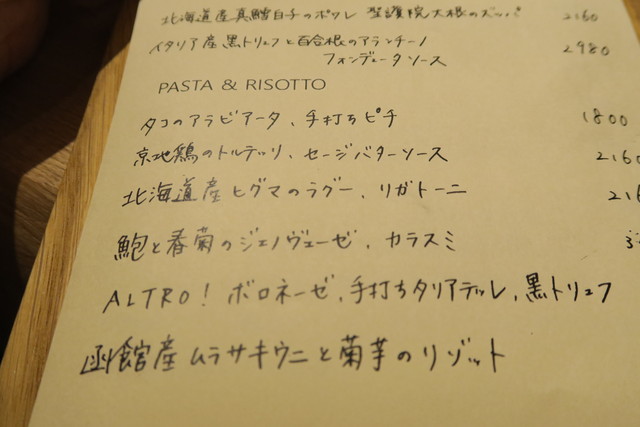 北海道産真鱈白子のポワレ 聖護院大根のズッパ 2160
イタリア産黒トリュフと百合根のアランチーノ 2980
フォンデュータソース
PASTA & RISOTTO
タコのアラビアータ、手打ちピチ 1800
京地鶏のトルテッリ、セージバターソース 2160
北海道産ヒグマのラグー、リガトーニ
鮑と春菊のジェノヴェーゼ、カラスミ
ALTRO! ボロネーゼ、手打ちタリアテッレ、黒トリュフ
函館産ムラサキウニと菊芋のリゾット